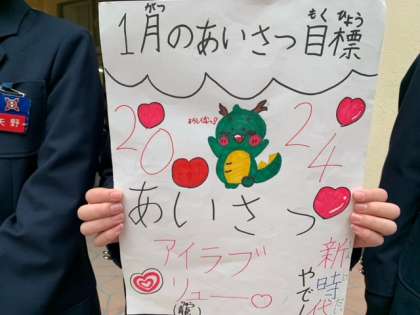 1月のあいさつ目標
がつ
もくひょう
20
24
あいさつ
アイラブ
リュー
新時代
やで
矢野